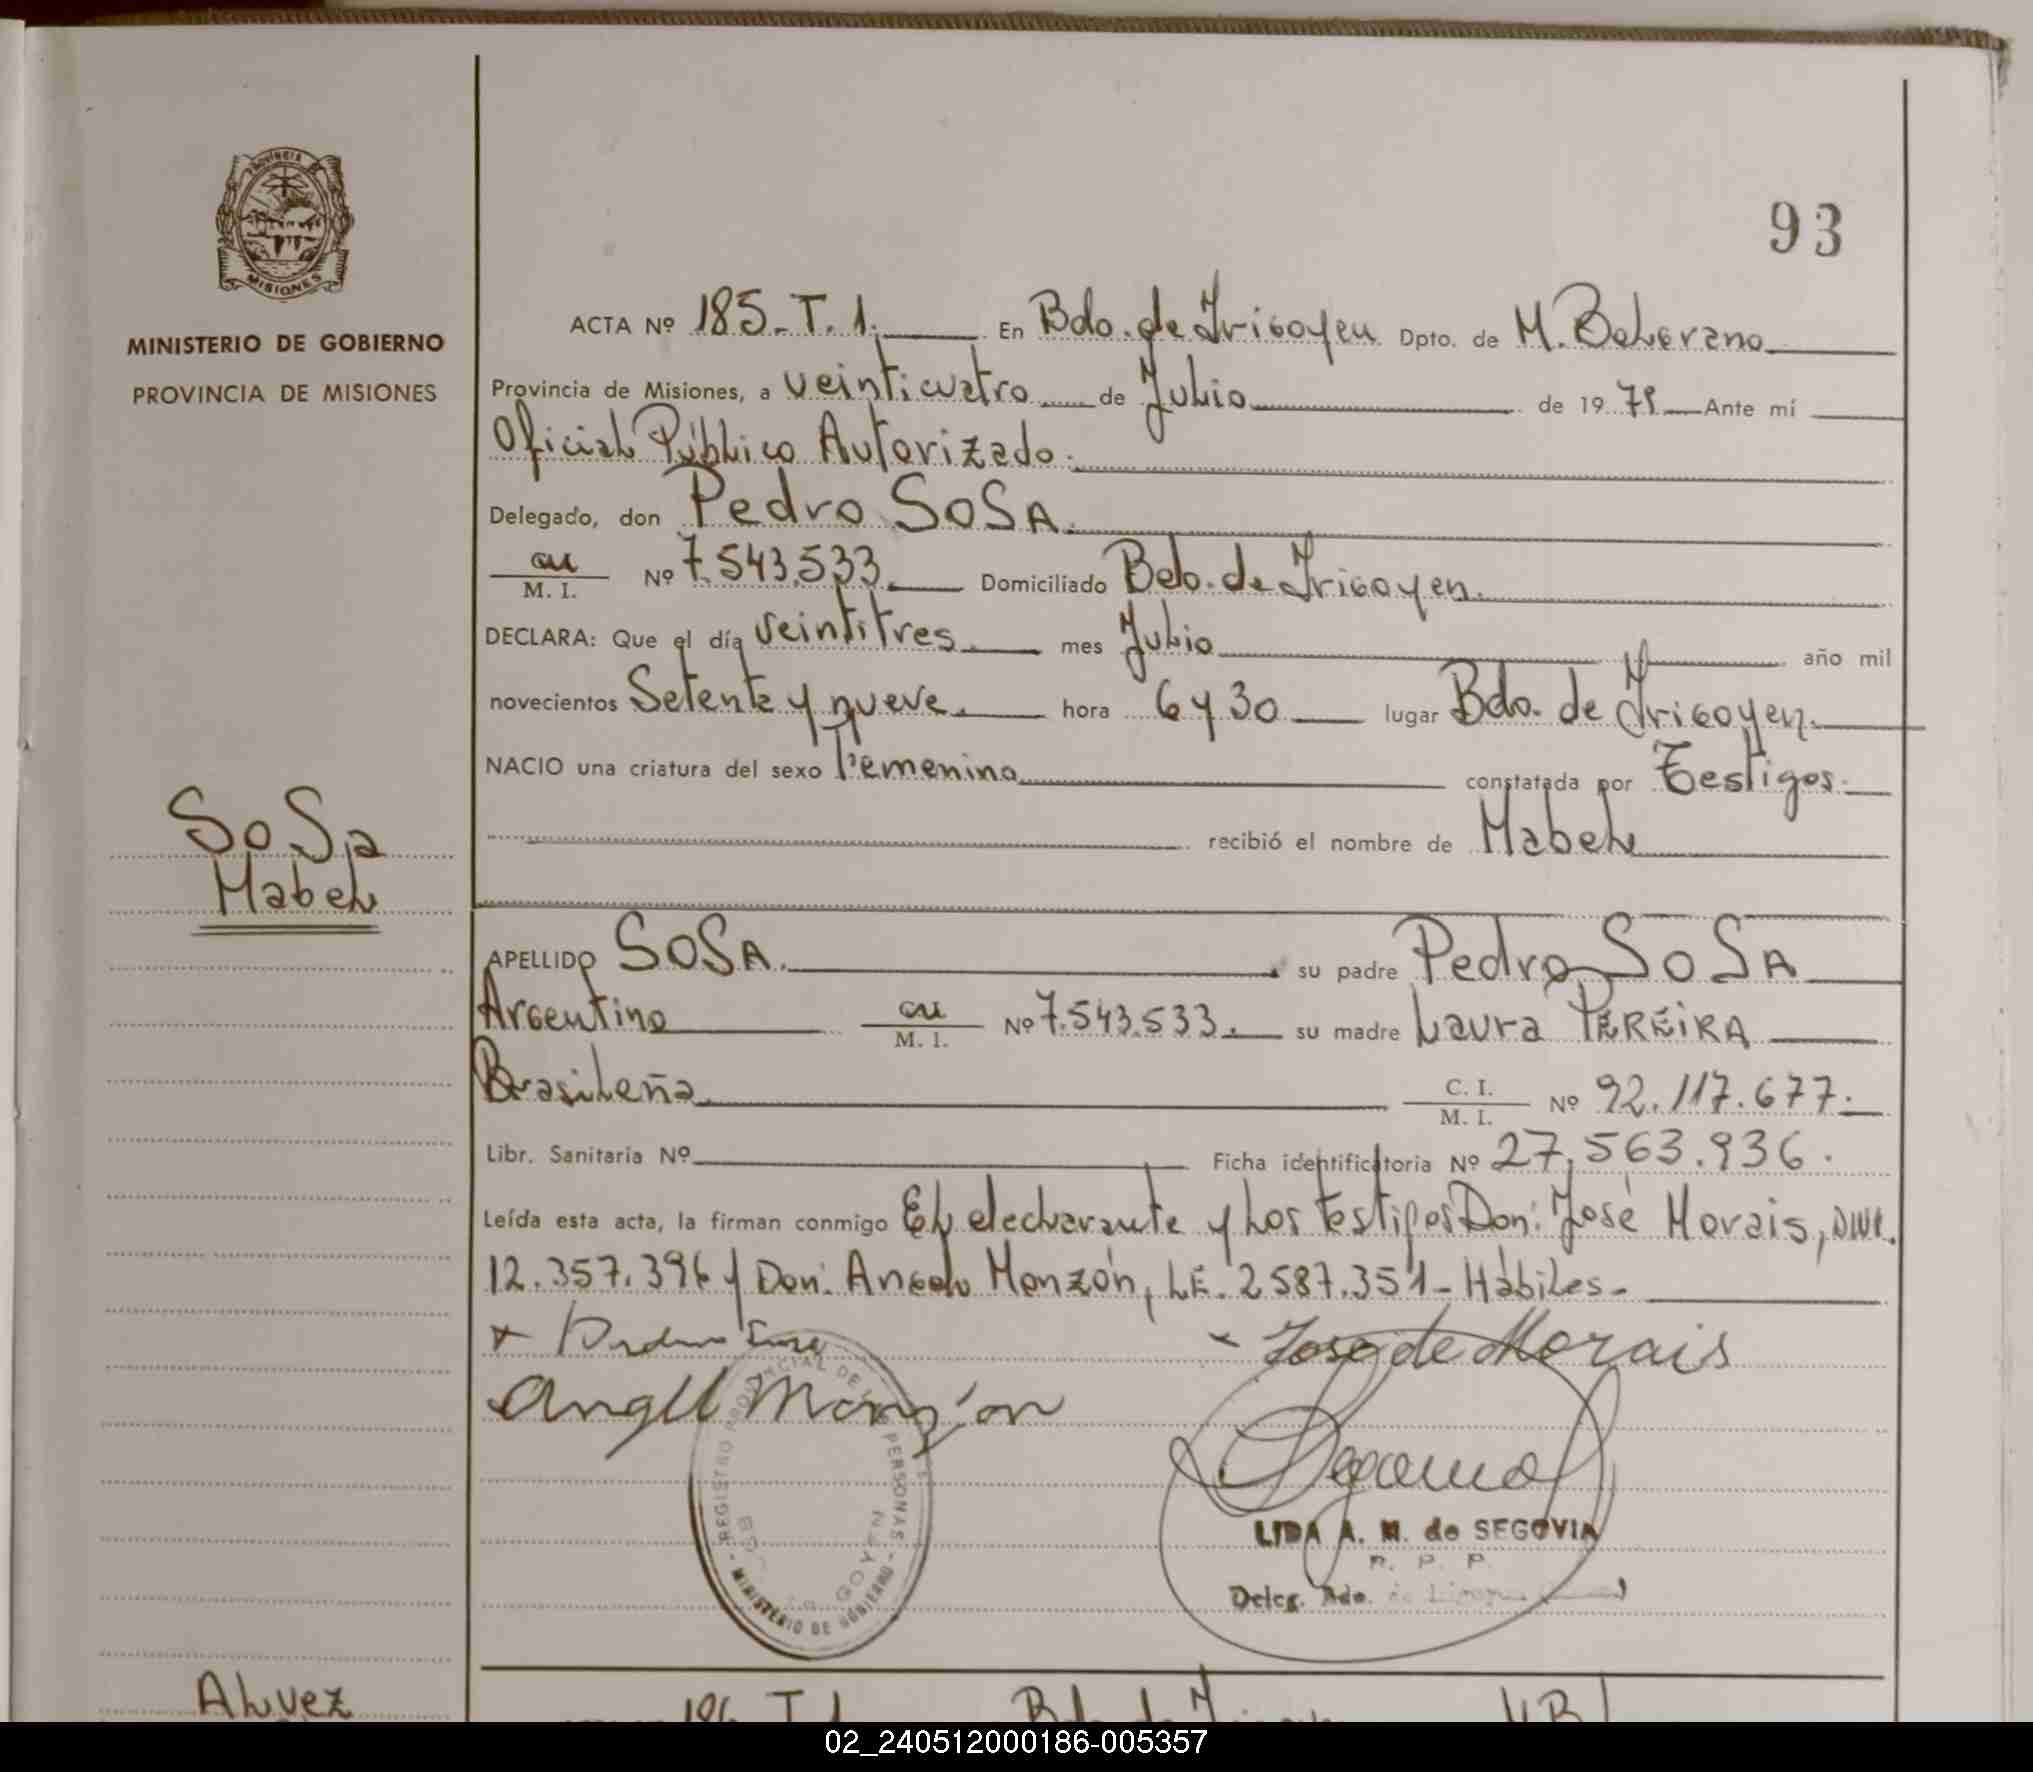 PROVINCIA
MISIONES
MINISTERIO DE GOBIERNO
PROVINCIA DE MISIONES
93
ACTA Nº 185-T.1. En Bdo. de Irigoyen Dpto. de M. Belgrano
Provincia de Misiones, a veinticuatro de Julio de 1979 Ante mí
Oficial Público Autorizado.
Delegado, don Pedro SOSA.
cu M. I. Nº 7.543.533. Domiciliado Bdo. de Irigoyen.
DECLARA: Que el día veintitres mes Julio año mil
novecientos Setenta y nueve. hora 6 y 30 lugar Bdo. de Irigoyen.
NACIO una criatura del sexo Femenino constatada por Testigos.
recibió el nombre de Mabel
SOSA
Mabel
APELLIDO SOSA. su padre Pedro SOSA
Argentino cu M. I. Nº 7.543.533. su madre Laura PEREiRA
Brasileña C. I. M. I. Nº 92.117.677.
Libr. Sanitaria Nº Ficha identificatoria Nº 27.563.936.
Leída esta acta, la firman conmigo El declarante y los testigos Don: José Morais, DNI.
12.357.396 y Don: Angel Monzón, LE. 2.587.351- Hábiles-
x Pedro Sosa
- Jose de Morais
Angel Monzón
REGISTRO PROVINCIAL DE LAS PERSONAS
MINISTERIO DE GOBIERNO
LIDA A. M. de SEGOVIA
R. P. P.
Deleg. Bdo. de Irigoyen
Alvez
186 T.1 Bdo. de Irigoyen M. B
02_240512000186-005357